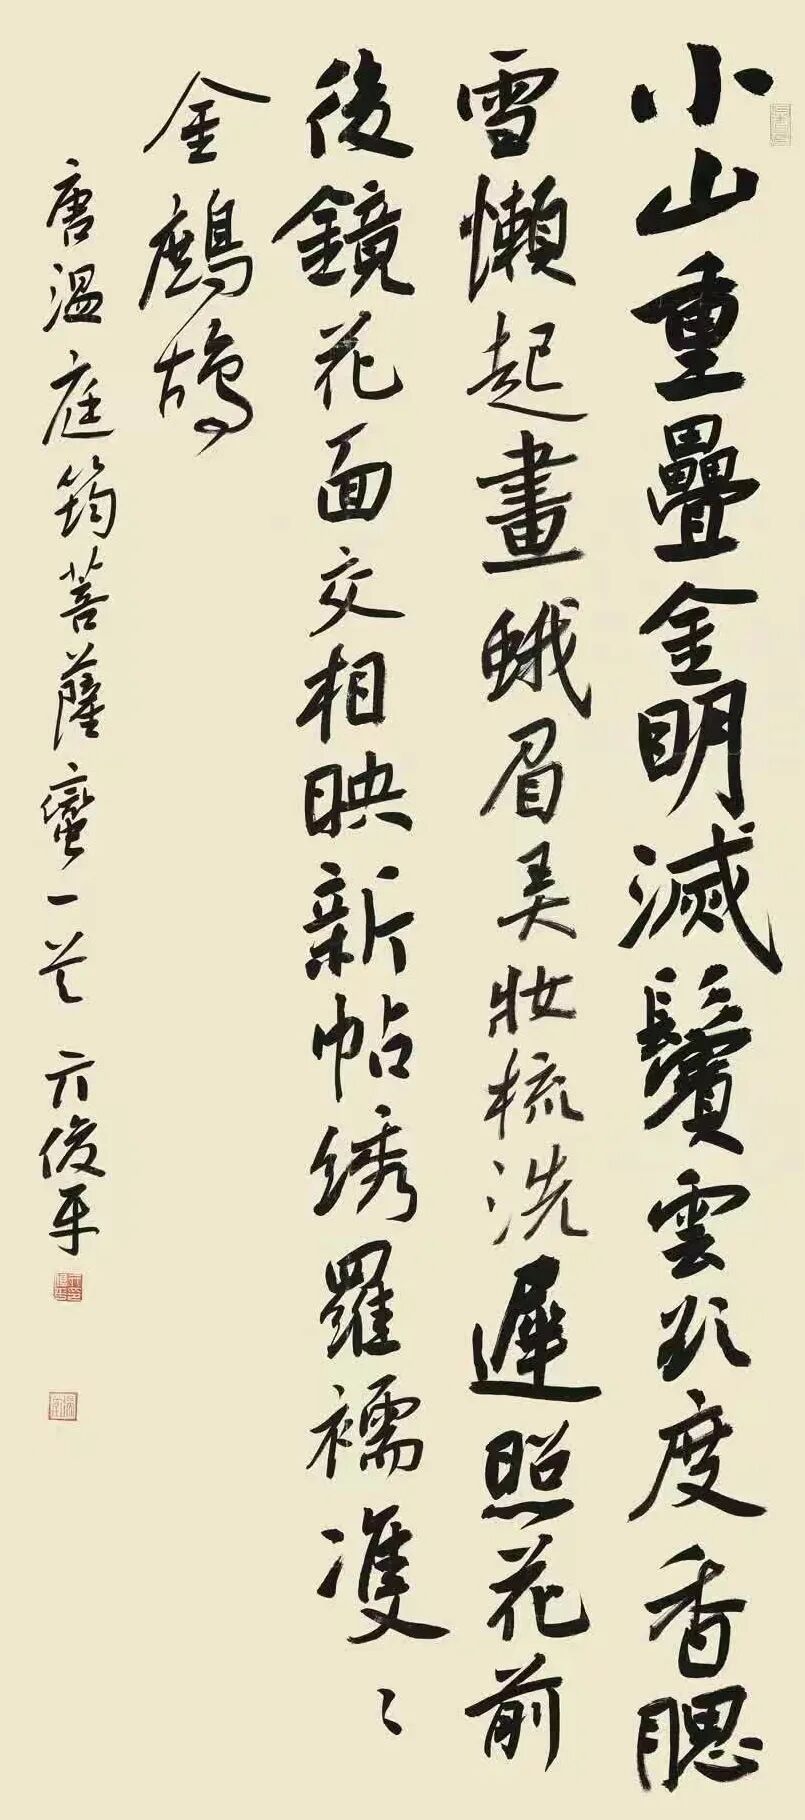 小山重疊金明滅鬢雲欲度香腮
雪懶起畫蛾眉弄妝梳洗遲照花前
後鏡花面交相映新帖绣羅襦雙〻
金鷓鴣
唐温庭筠菩薩蠻一首 亓俊平